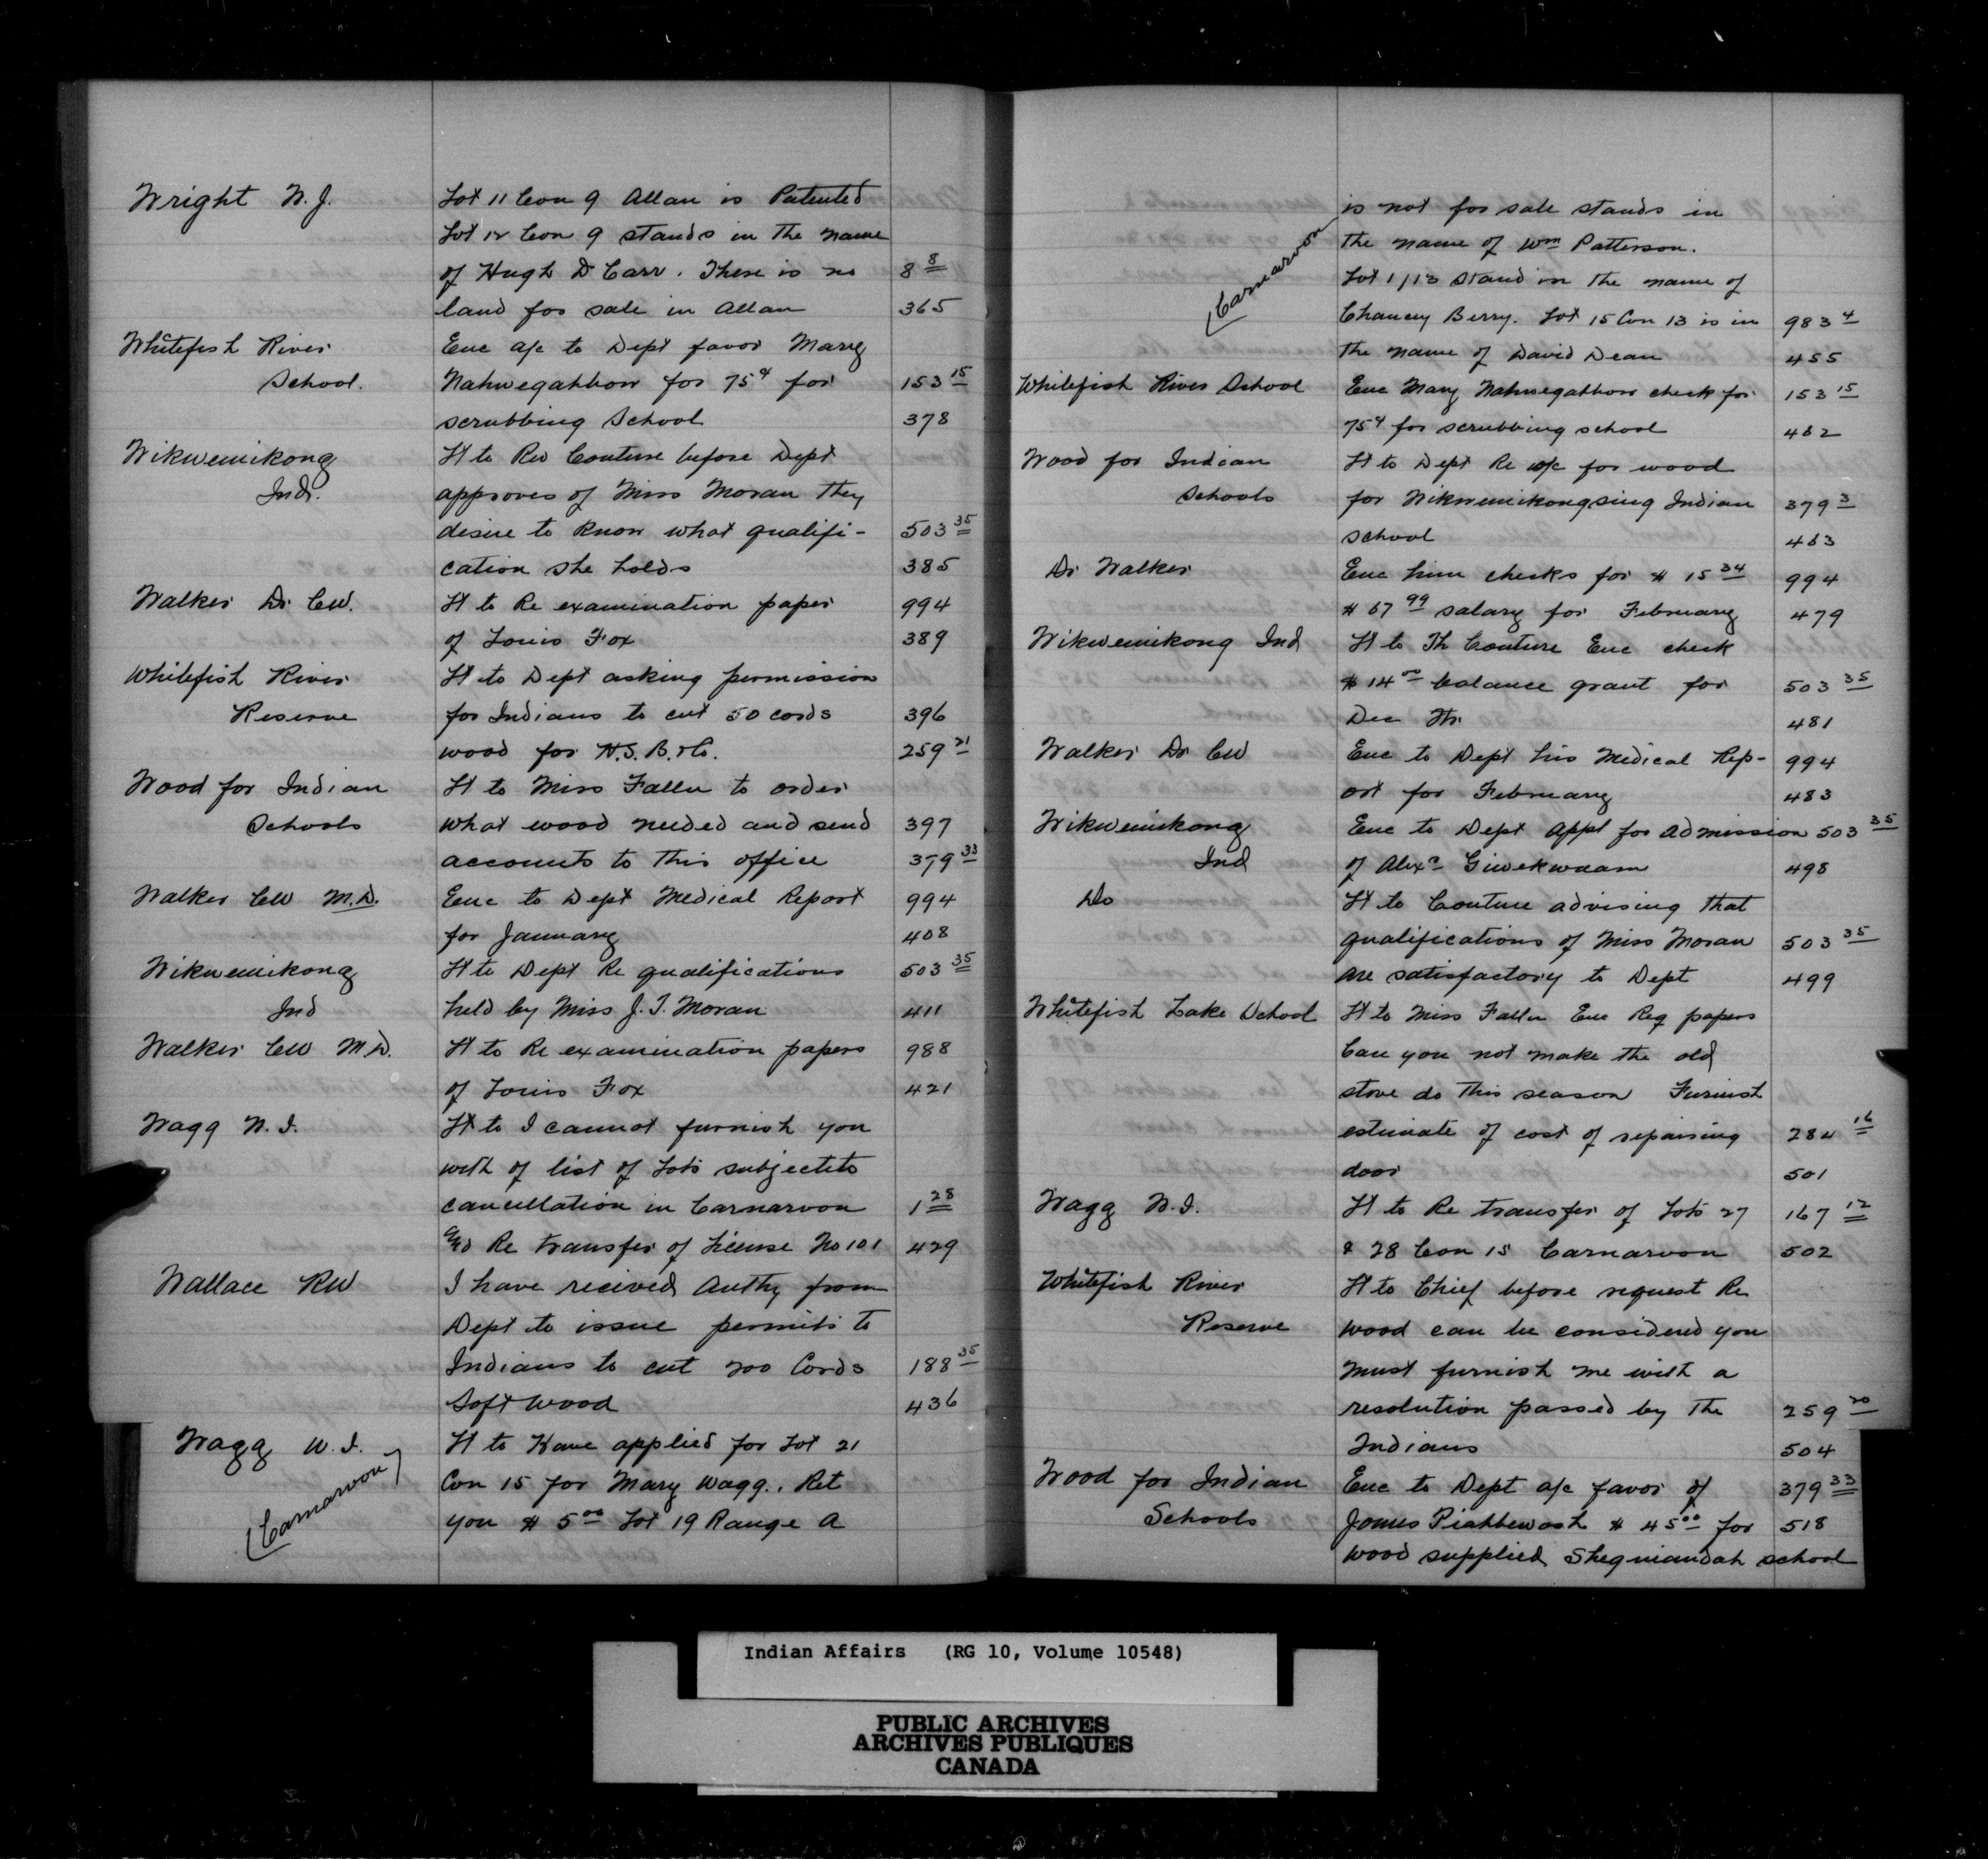 Wright W. J. Lot 11 Con 9 Allan is Patented
Lot 12 Con 9 stands in the name
of Hugh D Carr. There is no 8 8
land for sale in Allan 365
Whitefish River Enc a/c to Dept favor Mary
School. Nahwegahbow for 75¢ for 153 15
scrubbing School 378
Wikwemikong Lt to Rev Couture before Dept
Ind. approves of Miss Moran they
desire to know what qualifi- 503 35
cation she holds 385
Walker Dr CW. Lt to Re examination paper 994
of Louis Fox 389
Whitefish River Lt to Dept asking permission
Reserve for Indians to cut 50 cords 396
wood for H.S.B. & Co. 259 21
Wood for Indian Lt to Miss Fallu to order
Schools what wood needed and send 397
accounts to this office 379 33
Walker CW M.D. Enc to Dept Medical Report 994
for January 408
Wikwemikong Lt to Dept Re qualifications 503 35
Ind held by Miss J. T. Moran 411
Walker CW M.D. Lt to Re examination papers 988
of Louis Fox 421
Wagg W. I. Lt to I cannot furnish you
with of list of Lots subject to
cancellation in Carnarvon 1 28
Re transfer of License No 101 429
Wallace RW I have recived Authy from
Dept to issue permits to
Indians to cut 200 Cords 188 35
Soft wood 436
Wagg W. I. Lt to Have applied for Lot 21
(Carnarvon) Con 15 for Mary Wagg. Ret
you $ 5 00 Lot 19 Range A
is not for sale stands in
(Carnarvon the name of Wm Patterson.
Lot 1/13 stand in the name of
Chancey Berry. Lot 15 Con 13 is in 983 4
the name of David Dean 455
Whitefish River School Enc Mary Nahwegahbow check for 153 15
75¢ for scrubbing school 462
Wood for Indian Lt to Dept Re a/c for wood
Schools for Wikwemikongsing Indian 379 3
school 463
Dr Walker Enc him checks for $ 15 34 994
$ 67 99 salary for February 479
Wikwemikong Ind Lt to Th Couture Enc check
$ 14 00 balance grant for 503 35
Dec 481
Walker Dr CW Enc to Dept his Medical Rep- 994
ort for February 483
Wikwemikong Enc to Dept Appl for admission 503 35
Ind of Alexr Giwekwaam 498
Do Lt to Couture advising that
qualifications of Miss Moran 503 35
are satisfactory to Dept 499
Whitefish Lake School Lt to Miss Fallu Enc Req papers
Can you not make the old
stove do this season Furnish
estimate of cost of repairing 284 16
door 501
Wagg W. I. Lt to Re transfer of Lots 27 167 12
& 28 Con 15 Carnarvon 502
Whitefish River Lt to Chief before request Re
Reserve wood can be considered you
must furnish me with a
resolution passed by the 259 20
Indians 504
Wood for Indian Enc to Dept a/c favor of 379 33
Schools James Piahbewash $ 45 00 for 518
wood supplied Sheguiandah school
Indian Affairs (RG 10, Volume 10548)
PUBLIC ARCHIVES
ARCHIVES PUBLIQUES
CANADA